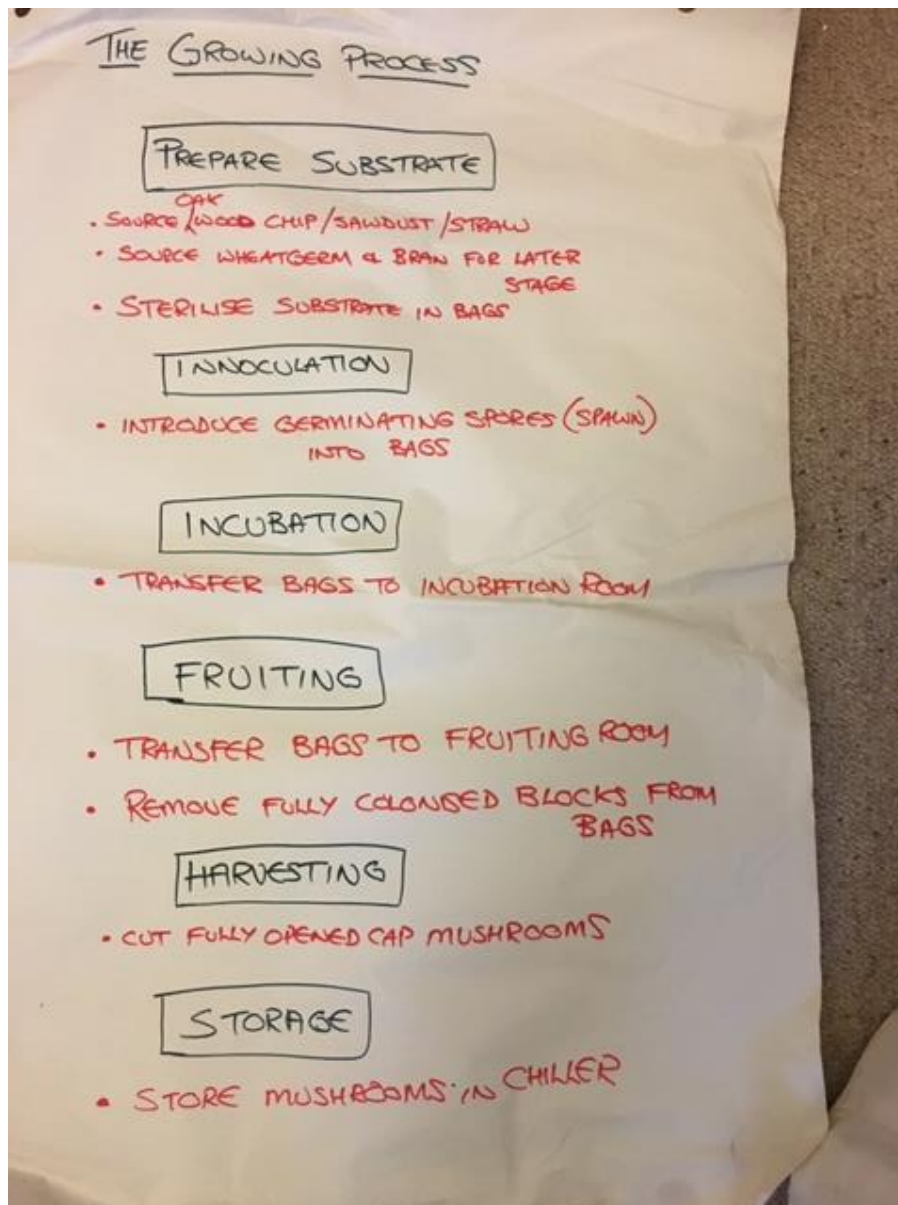 THE GROWING PROCESS
PREPARE SUBSTRATE
OAK
• SOURCE WOOD CHIP/SAWDUST/STRAW
• SOURCE WHEATGERM & BRAN FOR LATER
STAGE
• STERILISE SUBSTRATE IN BAGS
INNOCULATION
• INTRODUCE GERMINATING SPORES (SPAWN)
INTO BAGS
INCUBATION
• TRANSFER BAGS TO INCUBATION ROOM
FRUITING
• TRANSFER BAGS TO FRUITING ROOM
• REMOVE FULLY COLONISED BLOCKS FROM
BAGS
HARVESTING
• CUT FULLY OPENED CAP MUSHROOMS
STORAGE
• STORE MUSHROOMS IN CHILLER